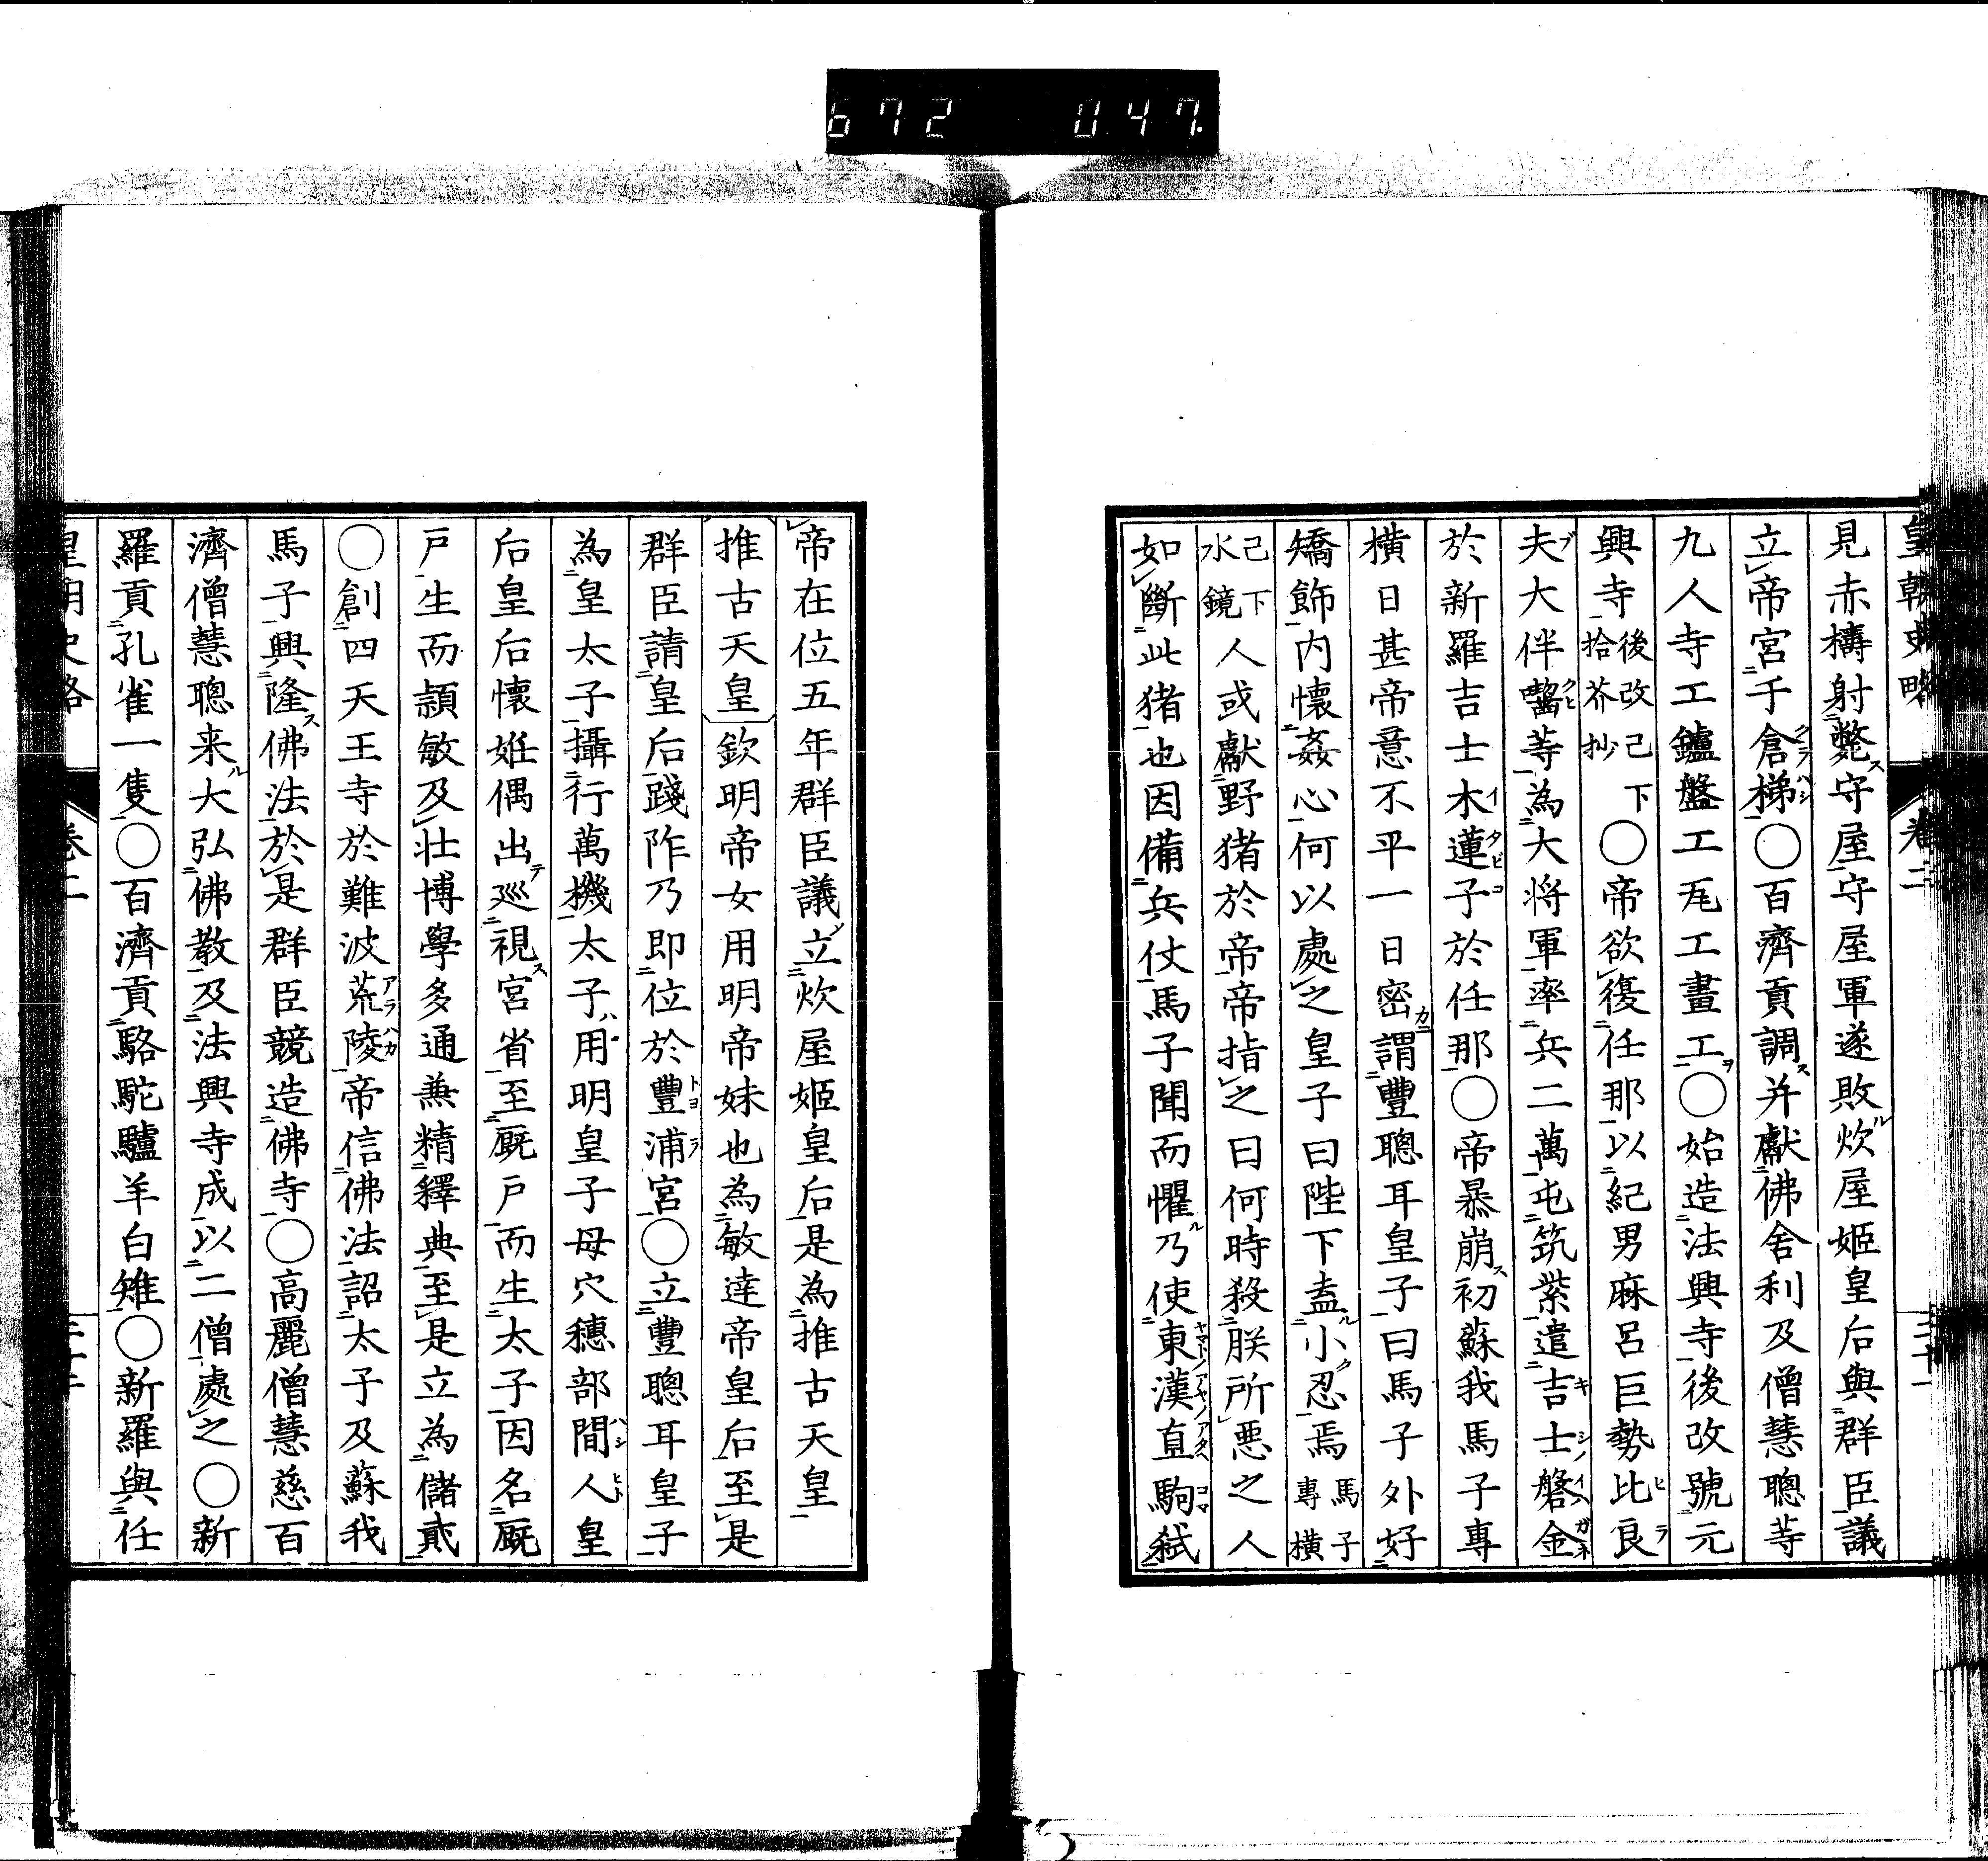 672 047.
皇朝史略 卷二 三十一
見赤檮射斃守屋守屋軍遂敗炊屋姬皇后與群臣議
立帝宮于倉梯○百濟貢調并獻佛舍利及僧慧聰等
九人寺工鑪盤工瓦工畫工○始造法興寺後改號元
興寺後改己下拾芥抄○帝欲復任那以紀男麻呂巨勢比良
夫大伴嚙等為大将軍率兵二萬屯筑紫遣吉士磐金
於新羅吉士木蓮子於任那○帝暴崩初蘇我馬子專
横日甚帝意不平一日密謂豐聰耳皇子曰馬子外好
矯飾内懷姦心何以處之皇子曰陛下盍小忍焉馬子專横
己下水鏡人或獻野猪於帝帝指之曰何時殺朕所惡之人
如斷此猪也因備兵仗馬子聞而懼乃使東漢直駒弑
帝在位五年群臣議立炊屋姬皇后是為推古天皇
推古天皇欽明帝女用明帝妹也為敏達帝皇后至是
群臣請皇后踐阼乃即位於豐浦宮○立豐聰耳皇子
為皇太子攝行萬機太子用明皇子母穴穗部間人皇
后皇后懷妊偶出巡視宮省至厩戸而生太子因名厩
戸生而頴敏及壮博學多通兼精釋典至是立為儲貳
○創四天王寺於難波荒陵帝信佛法詔太子及蘇我
馬子興隆佛法於是群臣競造佛寺○高麗僧慧慈百
濟僧慧聰来大弘佛教及法興寺成以二僧處之○新
羅貢孔雀一隻○百濟貢駱駝驢羊白雉○新羅與任
皇朝史略 卷二